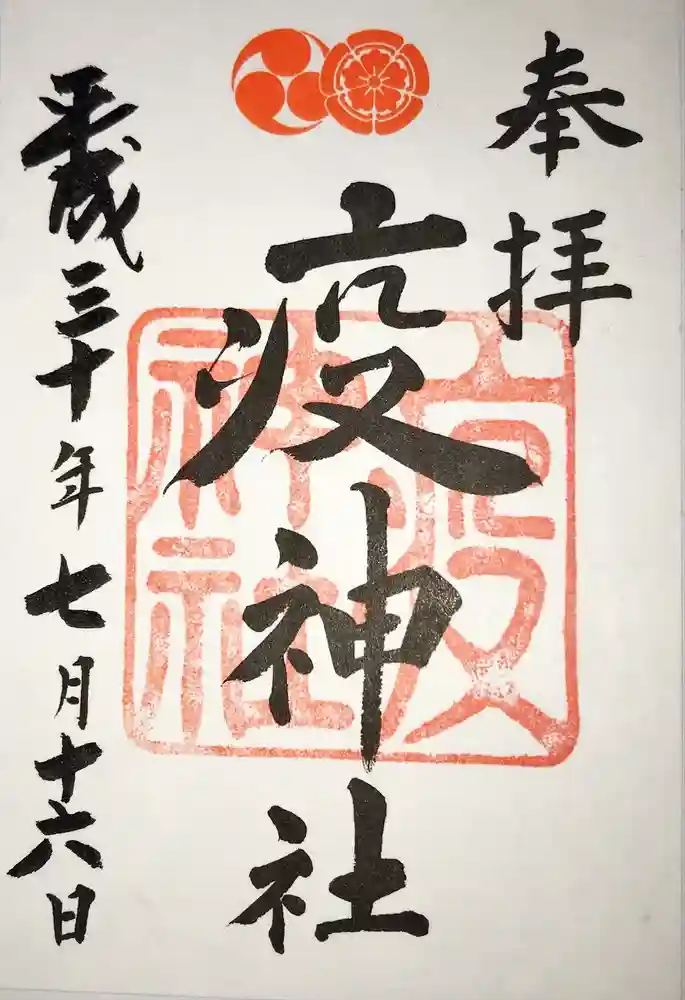 奉拝
疫神社
疫神社
平成三十年七月十六日